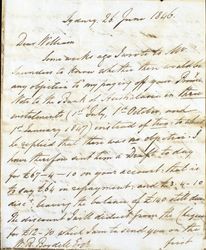 Sydney, 26 June 1846.
Dear William
Some weeks ago I wrote to Mr.
Saunders to know whether there would be
any objection to my paying off your Promy
Note to the Bank of Australasia in three
instalments (1st July, 1st October, and
1st January 1847) instead of then; to which
he replied that there was no objection. I
have therefore sent him a draft to day
for £67-4-10 on your account; that is
to say £64 in repayment; and £3-4-10
disct.; leaving the balance of £140 still due.
The discount I will deduct from the
for £12-10 which I am to send you on the
first
W. R. Bordell Esqr.